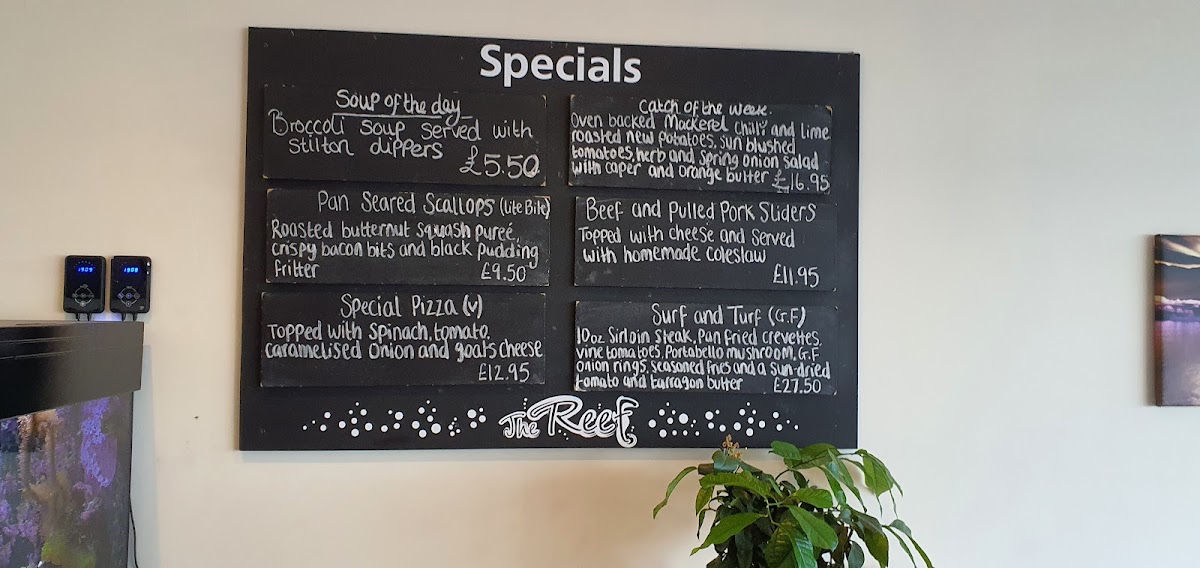 Specials
Soup of the day
Broccoli soup served with
stilton dippers
£5.50
Catch of the week.
Oven backed Mackerel chilly and lime
roasted new potatoes, sun blushed
tomatoes, herb and spring onion salad
with caper and orange butter £16.95
Pan Seared Scallops (Lite Bite)
Roasted butternut squash pureé,
crispy bacon bits and black pudding
fritter £9.50
Beef and Pulled Pork Sliders
Topped with cheese and served
with homemade coleslaw
£11.95
Special Pizza (v)
Topped with spinach, tomato,
caramelised onion and goats cheese
£12.95
Surf and Turf (G.F)
10oz Sirloin steak, pan fried crevettes,
vine tomatoes, Portabello mushroom, G.F
onion rings, seasoned fries and a sun-dried
tomato and tarragon butter £27.50
The Reef